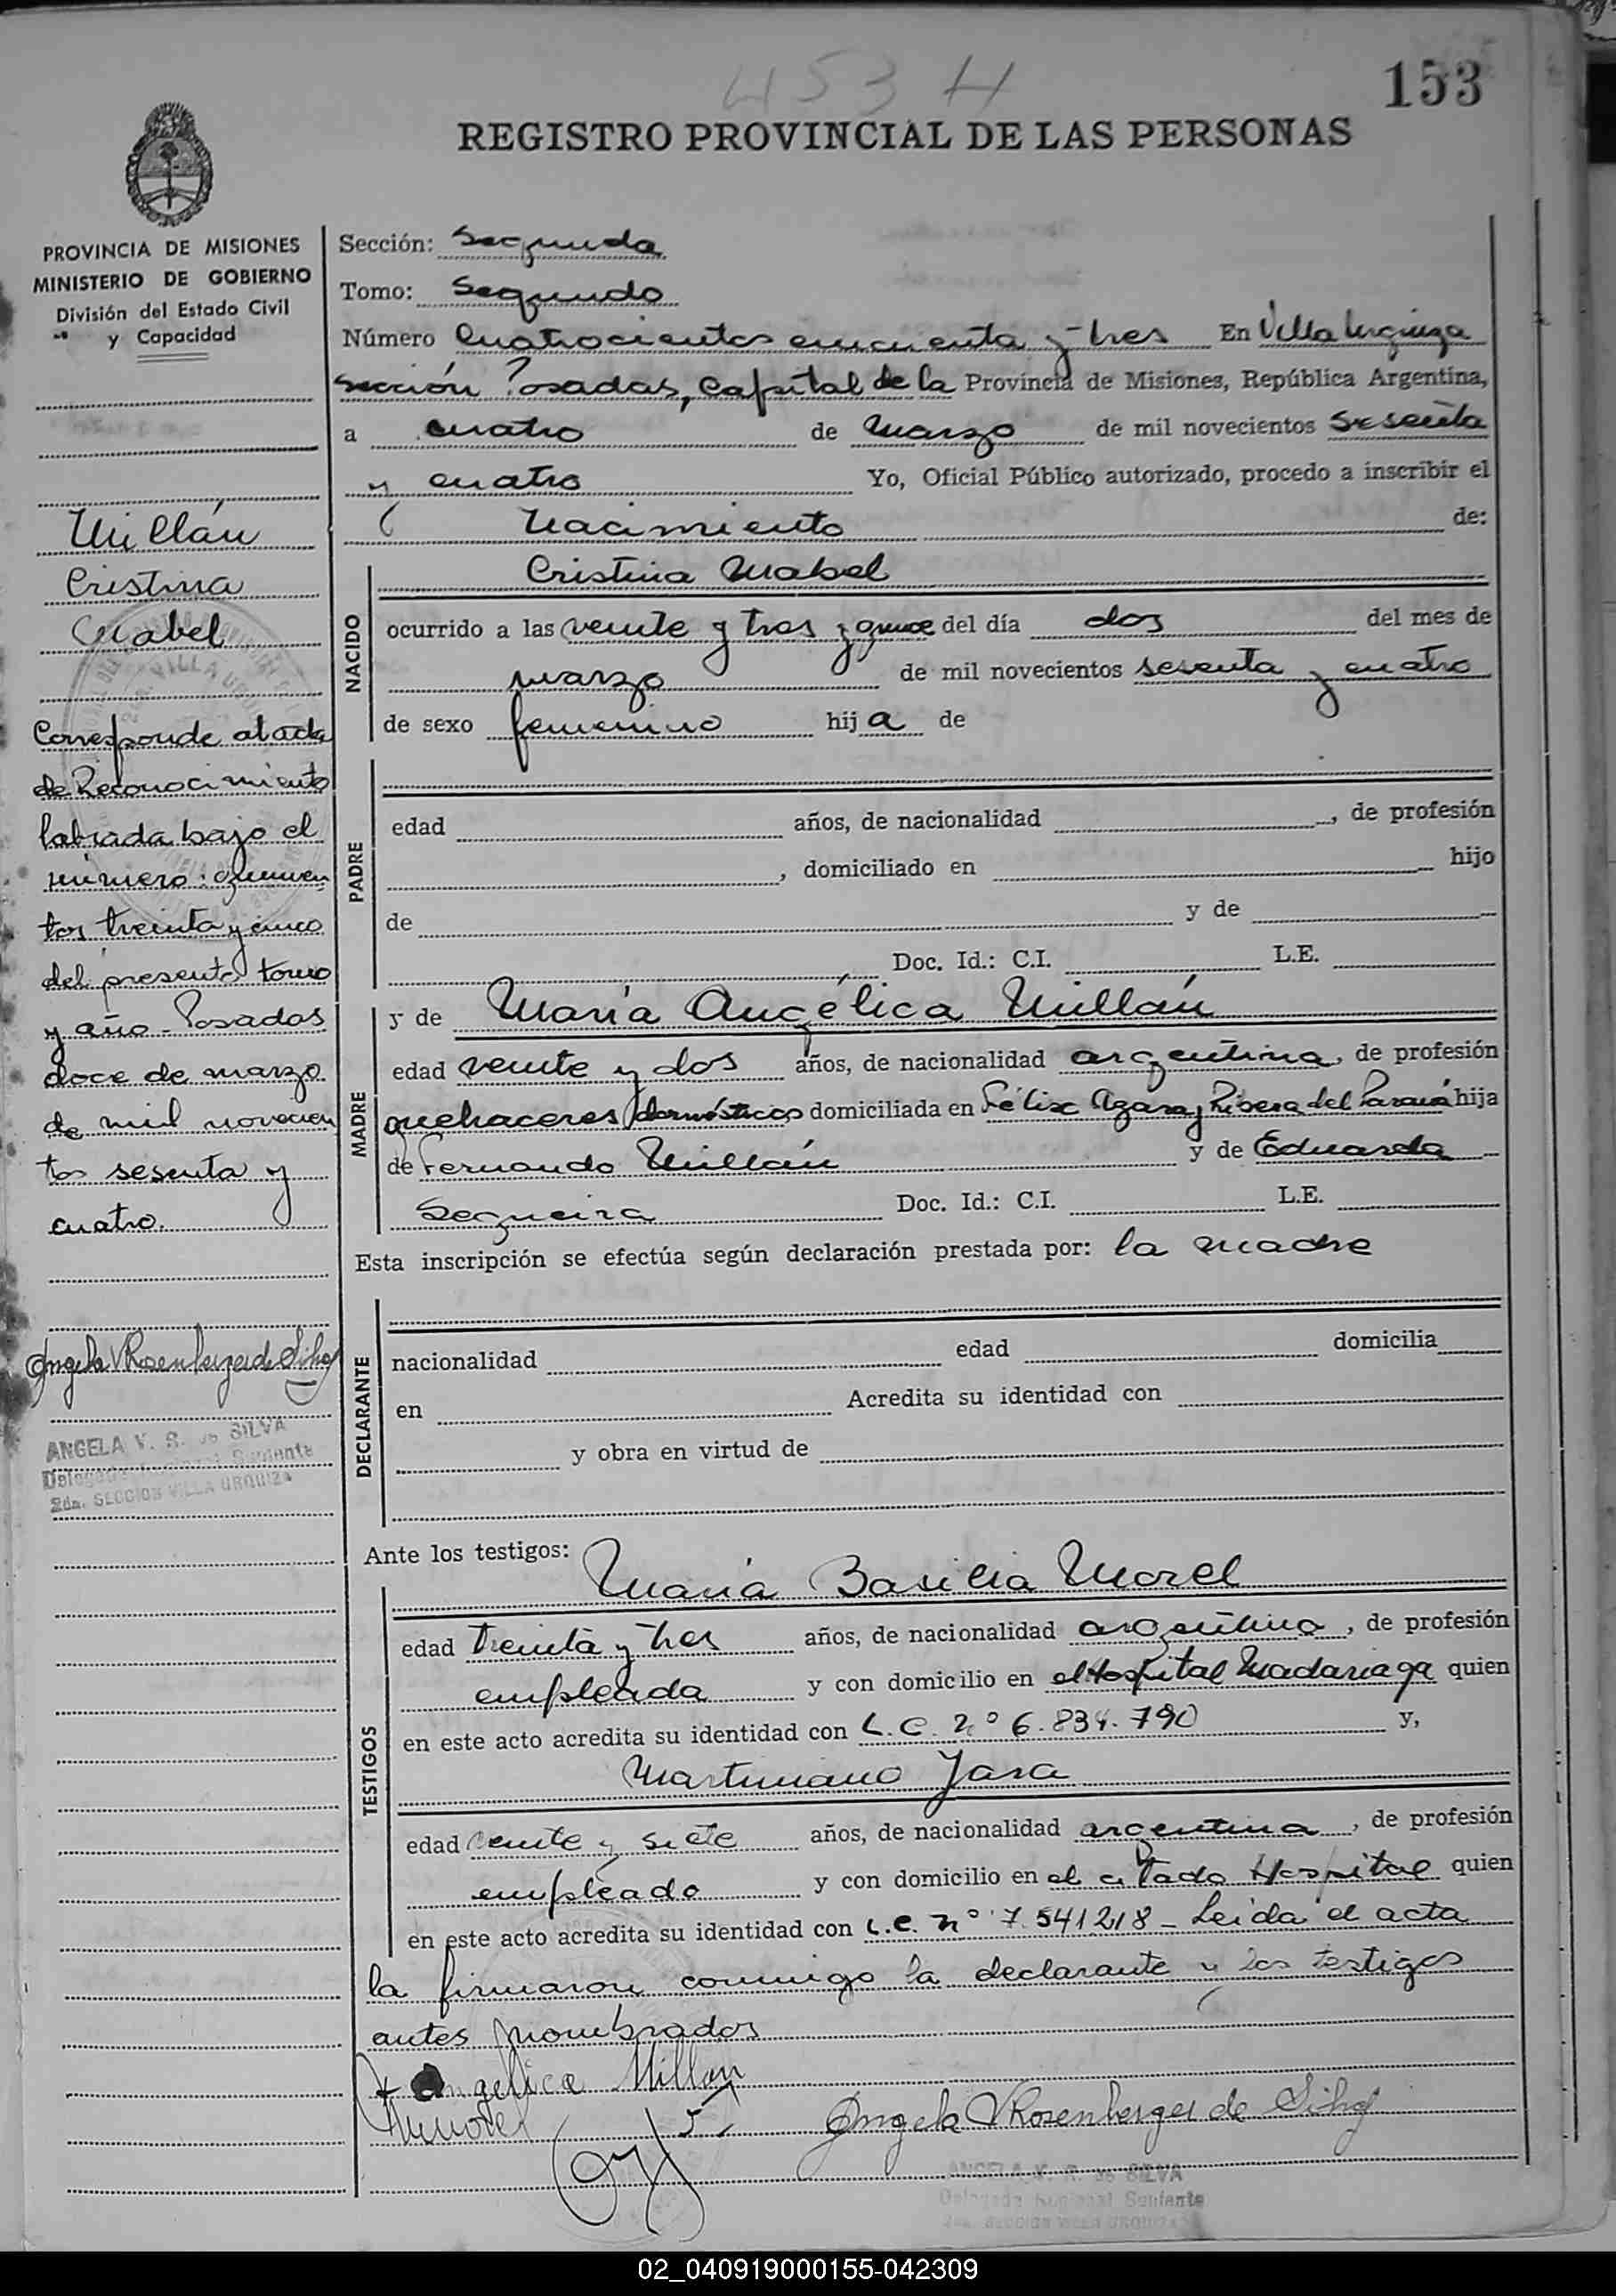 453 H
153
REGISTRO PROVINCIAL DE LAS PERSONAS
PROVINCIA DE MISIONES
MINISTERIO DE GOBIERNO
División del Estado Civil
y Capacidad
Millán
Cristina
Mabel
Corresponde al acta
de Reconocimiento
labrada bajo el
número: quinien
tos treinta y cinco
del presente tomo
y año - Posadas
doce de marzo
de mil novecien
tos sesenta y
cuatro.
Angela V Rosenberger de Silva
ANGELA V. R. de SILVA
Delegada Regional Suplente
2da. SECCION VILLA URQUIZA
Sección: Segunda
Tomo: Segundo
Número Cuatrocientos cincuenta y tres En Villa Urquiza
Sección Posadas, Capital de la Provincia de Misiones, República Argentina,
a cuatro de Marzo de mil novecientos sesenta
y cuatro Yo, Oficial Público autorizado, procedo a inscribir el
Nacimiento de:
Cristina Mabel
NACIDO
ocurrido a las veinte y tres y quince del día dos del mes de
marzo de mil novecientos sesenta y cuatro
de sexo femenino hija de
PADRE
edad años, de nacionalidad , de profesión
, domiciliado en hijo
de y de
Doc. Id.: C.I. L.E.
MADRE
y de María Angélica Millán
edad veinte y dos años, de nacionalidad argentina, de profesión
quehaceres domésticos domiciliada en Félix Azara y Ribera del Paraná hija
de Fernando Millán y de Eduarda
Sequeira Doc. Id.: C.I. L.E.
Esta inscripción se efectúa según declaración prestada por: la madre
DECLARANTE
nacionalidad edad domicilia
en Acredita su identidad con
y obra en virtud de
Ante los testigos:
María Basilia Morel
TESTIGOS
edad treinta y tres años, de nacionalidad argentina, de profesión
empleada y con domicilio en el Hospital Madariaga quien
en este acto acredita su identidad con L.C. nº 6.834.790 y,
Martiniano Jara
edad veinte y siete años, de nacionalidad argentina, de profesión
empleado y con domicilio en el citado Hospital quien
en este acto acredita su identidad con L.E. nº 7.541218 - Leida el acta
la firmaron conmigo la declarante y los testigos
antes nombrados
Angelica Millan
Angela V Rosenberger de Silva
ANGELA V. R. de SILVA
Delegada Regional Suplente
2da. SECCION VILLA URQUIZA
02_040919000155-042309